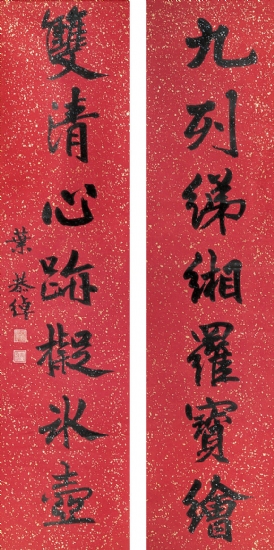 九列綈緗羅寶繪
雙清心跡擬冰壺
葉恭綽